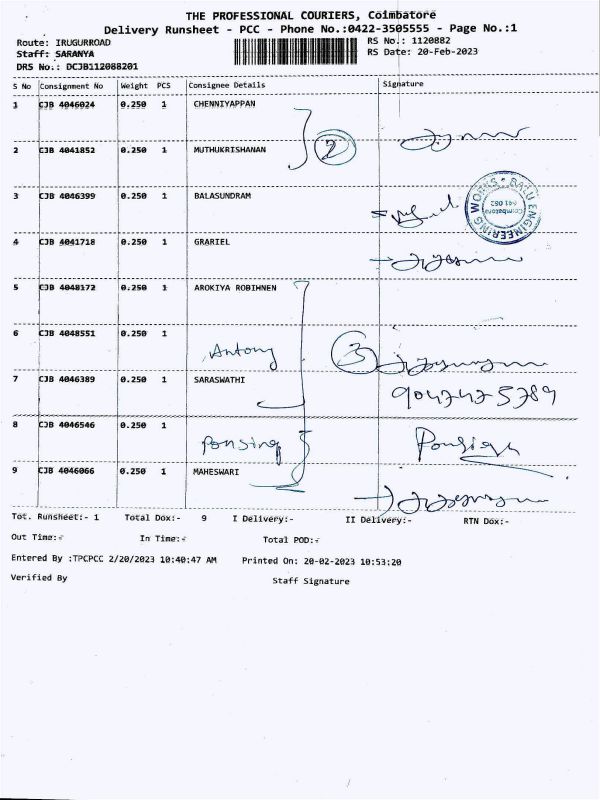 THE PROFESSIONAL COURIERS, Coimbatore
Delivery Runsheet - PCC - Phone No.:0422-3505555 - Page No.:1
Route: IRUGURROAD
RS No.: 1120882
Staff: SARANYA
RS Date: 20-Feb-2023
DRS No.: DCJB112088201
S No Consignment No Weight PCS Consignee Details Signature
1 CJB 4046024 0.250 1 CHENNIYAPPAN
2
2 CJB 4041852 0.250 1 MUTHUKRISHANAN
3 CJB 4046399 0.250 1 BALASUNDRAM
BALU ENGINEERING WORKS
Coimbatore
4 CJB 4041718 0.250 1 GRARIEL
5 CJB 4048172 0.250 1 AROKIYA ROBIHNEN
6 CJB 4048551 0.250 1
Antony 3
7 CJB 4046389 0.250 1 SARASWATHI
9047475789
8 CJB 4046546 0.250 1
Ponsing
9 CJB 4046066 0.250 1 MAHESWARI
Tot. Runsheet:- 1 Total Dox:- 9 I Delivery:- II Delivery:- RTN Dox:-
Out Time:- In Time:- Total POD:-
Entered By :TPCPCC 2/20/2023 10:40:47 AM Printed On: 20-02-2023 10:53:20
Verified By Staff Signature